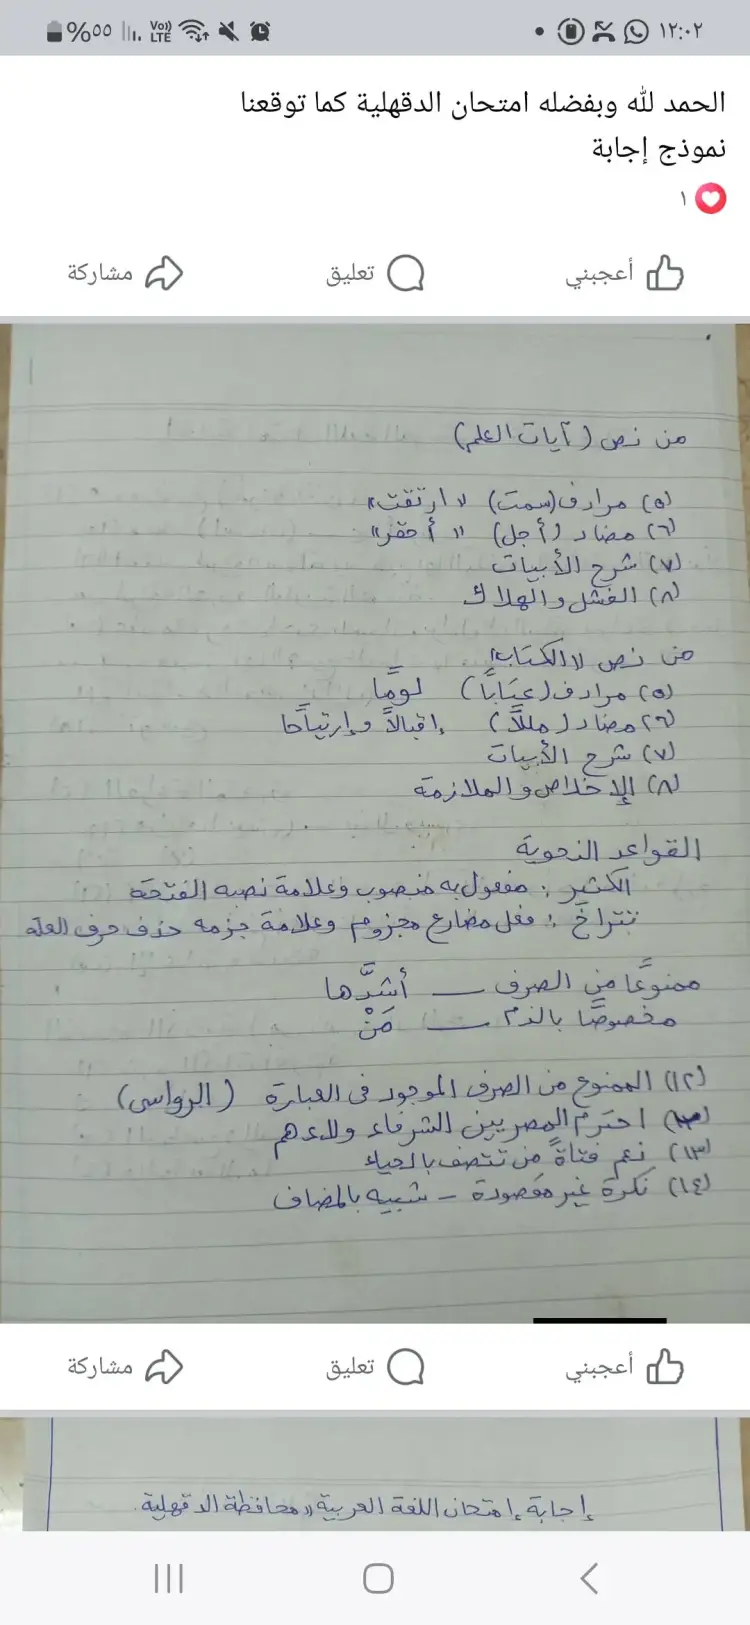 ١٢:٠٢
%٥٥
Vo))
LTE
الحمد لله وبفضله امتحان الدقهلية كما توقعنا
نموذج إجابة
١
أعجبني
تعليق
مشاركة
من نص (آيات العلم)
(٥) مرادف (سمت) "ارتقت"
(٦) مضاد (أجل) "أحقر"
(٧) شرح الأبيات
(٨) الفشل والهلاك
من نص "الكتاب"
(٥) مرادف (عتابًا) لومًا
(٦) مضاد (مللًا) إقبالًا وإرتياحًا
(٧) شرح الأبيات
(٨) الإخلاص والملازمة
القواعد النحوية
الكثير : مفعول به منصوب وعلامة نصبه الفتحة
تتراخَ : فعل مضارع مجزوم وعلامة جزمه حذف حرف العلة
ممنوعًا من الصرف — أشدَّها
مخصوصًا بالذم — مَنْ
(١٢) الممنوع من الصرف الموجود فى العبارة (الرواسى)
احترم المصريين الشرفاء ولاءهم
(١٣) نعم فتاةً من تتصف بالحياء
(١٤) نكرة غير مقصودة - شبيه بالمضاف
أعجبني
تعليق
مشاركة
إجابة إمتحان اللغة العربية "محافظة الدقهلية.